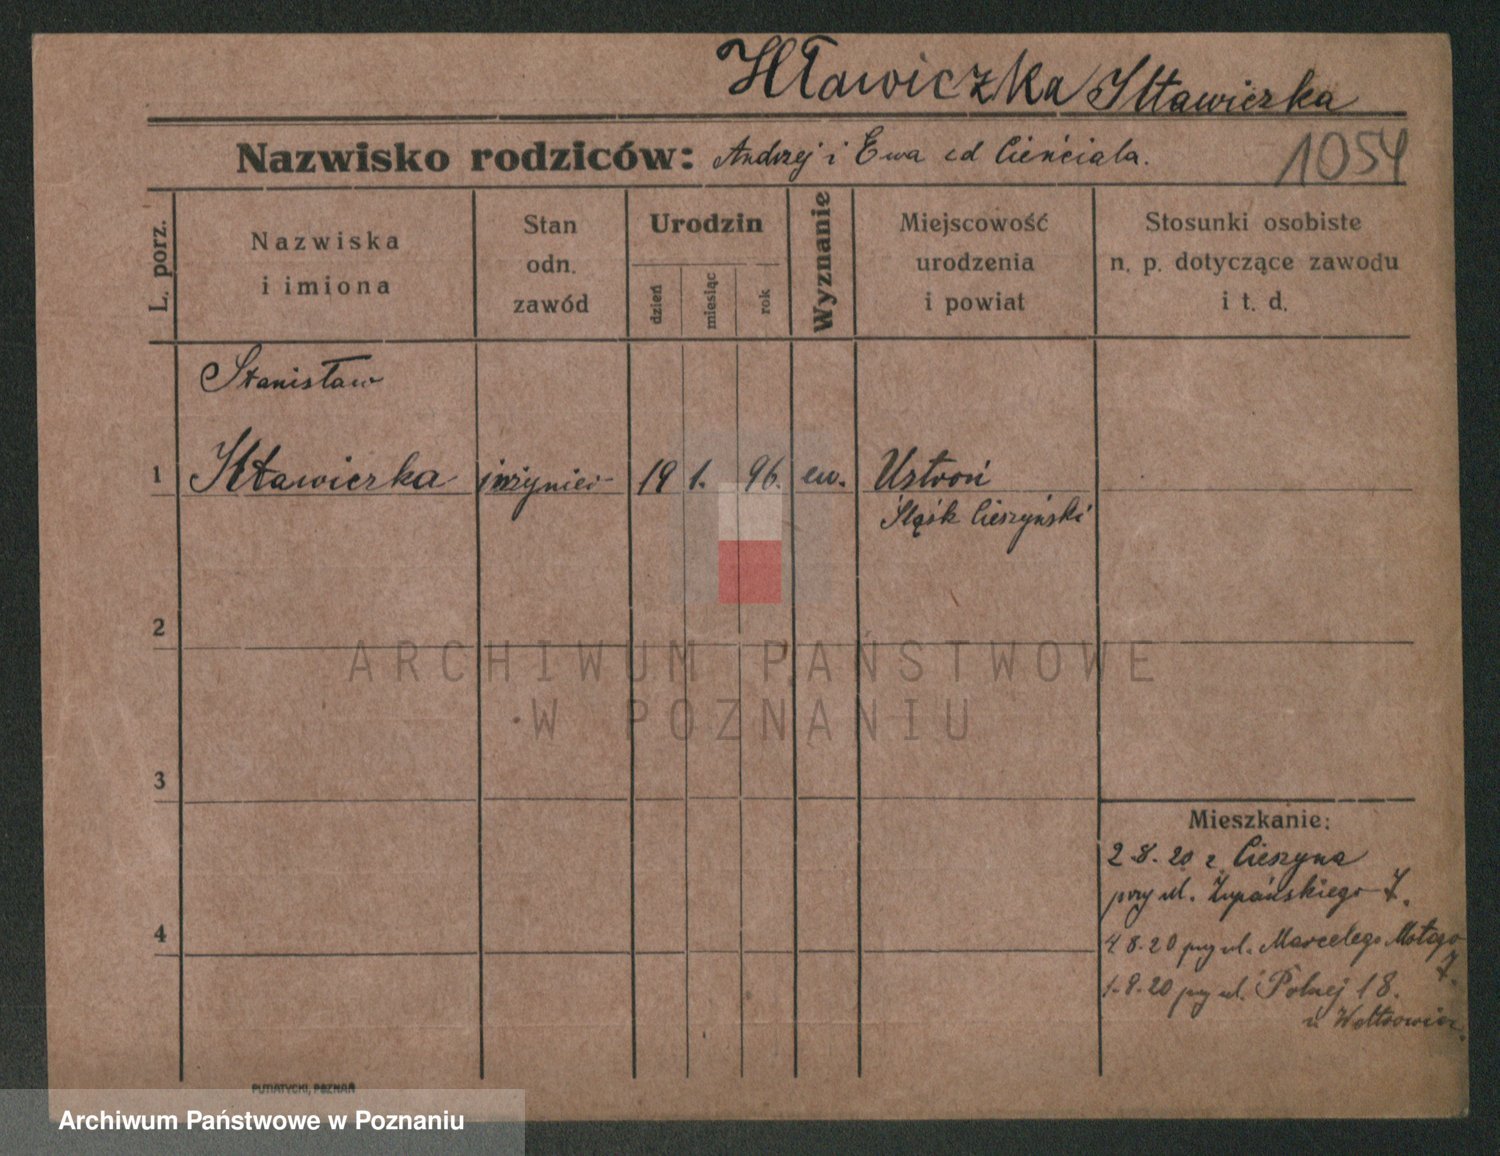 Hławiczka Hławiczka
Nazwisko rodziców: Andrzej i Ewa cd Cieńciala.
1054
L. porz.
Nazwiska
i imiona
Stan
odn.
zawód
Urodzin
dzień
miesiąc
rok
Wyznanie
Miejscowość
urodzenia
i powiat
Stosunki osobiste
n. p. dotyczące zawodu
i t. d.
Stanisław
1 Hławiczka inżynier 19 1. 96. ew. Ustroń
Śląsk Cieszyński
2
ARCHIWUM PAŃSTWOWE
W POZNANIU
3
Mieszkanie:
2.8.20 z Cieszyna
przy ul. Żupańskiego 7.
4
4.8.20 przy ul. Marcelego Motego
7.
1.9.20 przy ul. Polnej 18.
u
PUTIATYCKI, POZNAŃ
Archiwum Państwowe w Poznaniu